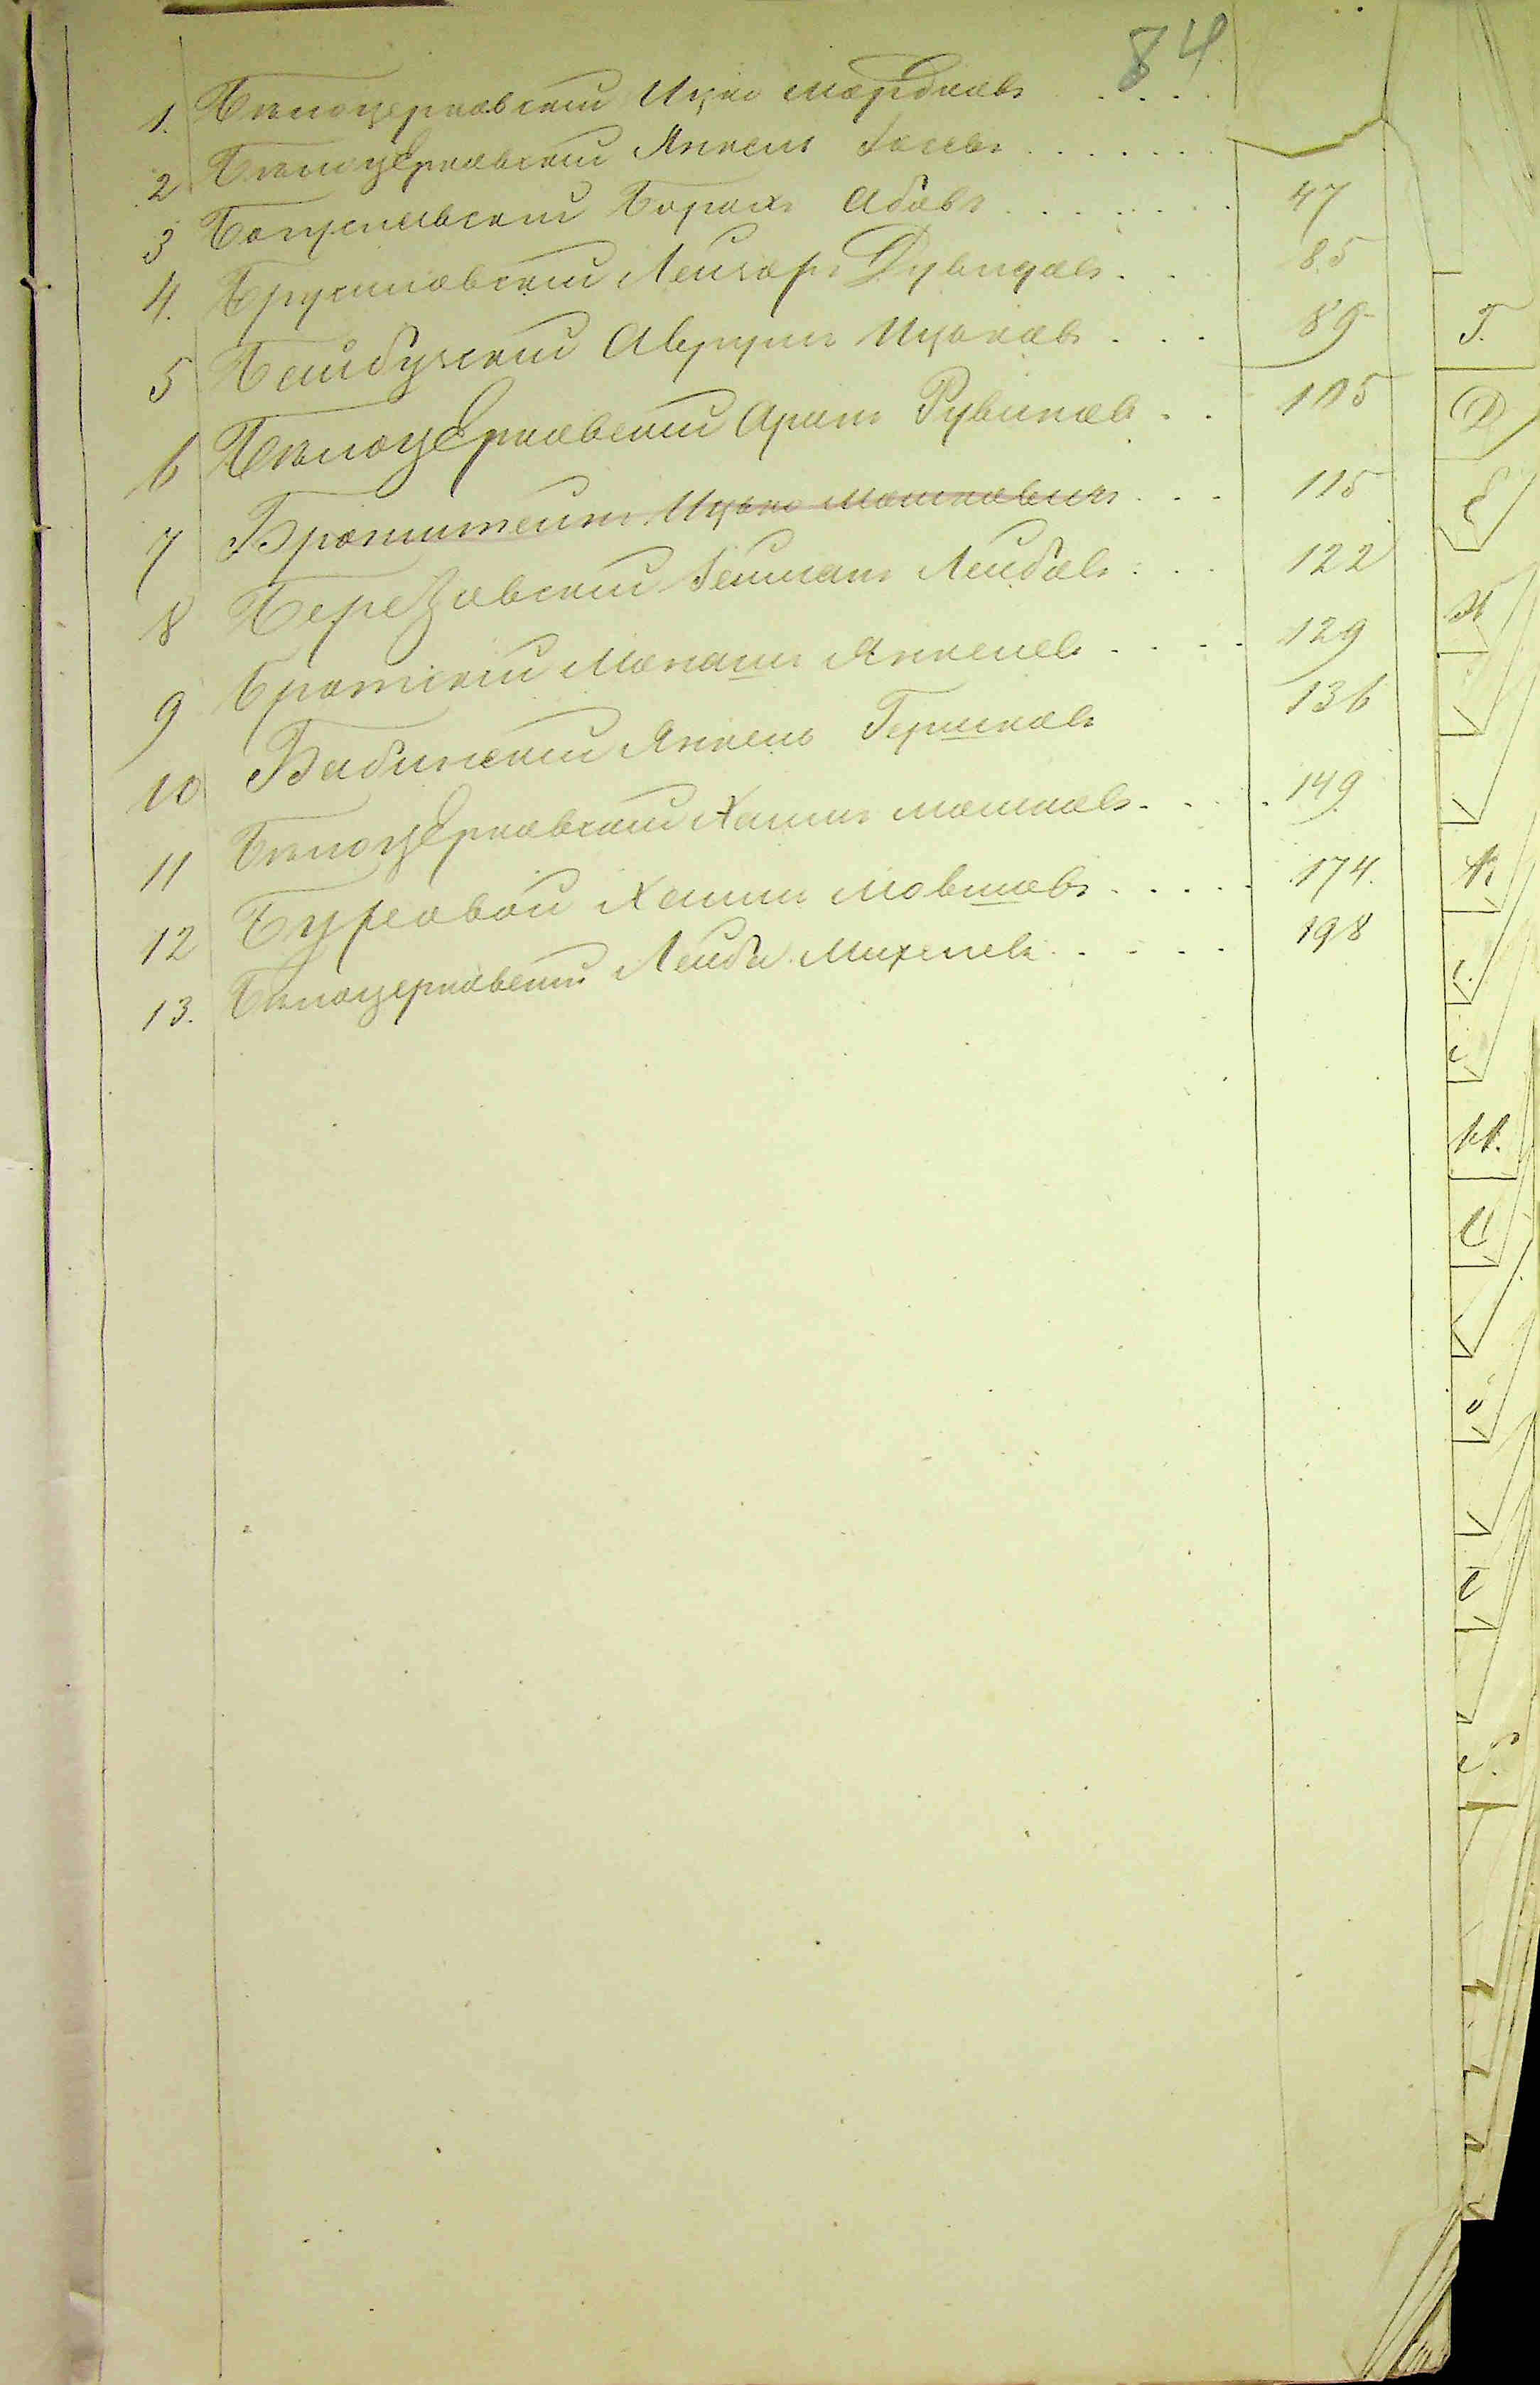 84
1. Бѣлоцерковскій Ицко Мордковъ . . . .
2 Бѣлоцерковскій Янкель Іосевъ . . . . . .
3 Богуславскій Борахъ Абовъ . . . . . . . 47
4. Брусиловскій Лейзоръ Дувидовъ . . . 85
5 Байбузскій Аврумъ Ицковъ . . . 89
6 Бѣлоцерковскій Аронъ Рувиновъ . . 105
7 Бронштейнъ Ицько Мошковичъ . . . 115
8 Березовскій Гейманъ Лейбовъ . . . 122
9 Братскій Монашъ Янкелев . . . . 129
10 Бабинскій Янкель Гершковъ 136
11 Бѣлоцерковскій Хаимъ Мошковъ . . . . 149
12 Бурсовой Хаимъ Мовшовъ . . . . . 174.
13. Бѣлоцерковскій Лейба Михелевъ . . . . . 198
Г.
Д
Е
Ж
К
М.